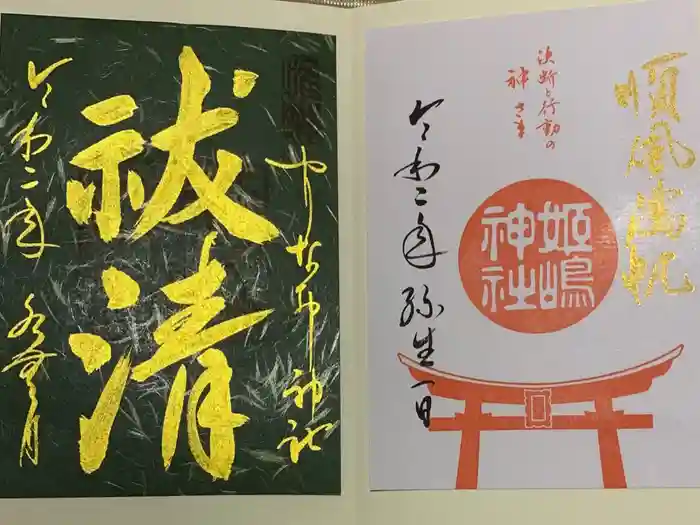 祓清
令和二年
水無月
順風満帆
決断と行動の
神さま
姫嶋
神社
令和二年 弥生一日